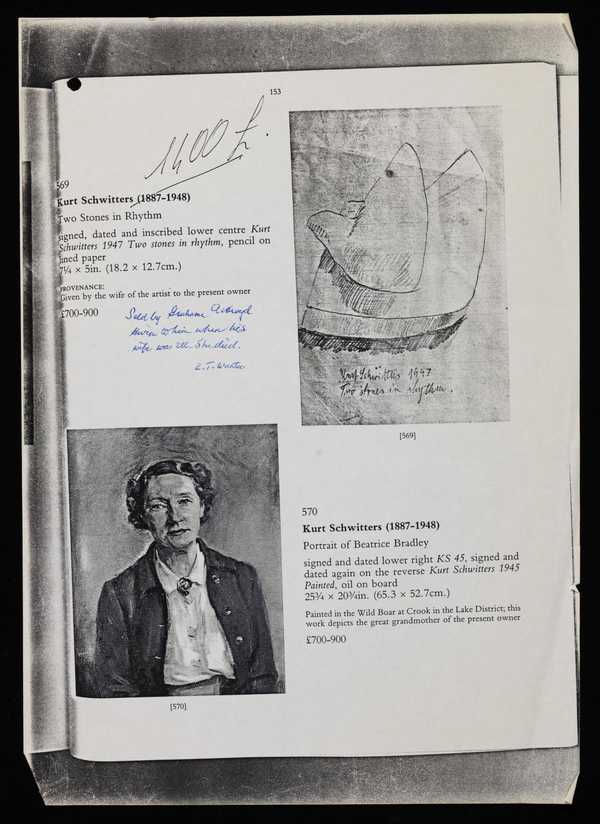 153
1400 £.
569
Kurt Schwitters (1887–1948)
Two Stones in Rhythm
signed, dated and inscribed lower centre Kurt
Schwitters 1947 Two stones in rhythm, pencil on
lined paper
7¼ × 5in. (18.2 × 12.7cm.)
PROVENANCE:
Given by the wife of the artist to the present owner
£700-900
Sold by Graham
given to him when his
wife was ill. She died.
E. T.
Kurt Schwitters 1947
Two stones in rhythm.
[569]
[570]
570
Kurt Schwitters (1887–1948)
Portrait of Beatrice Bradley
signed and dated lower right KS 45, signed and
dated again on the reverse Kurt Schwitters 1945
Painted, oil on board
25¾ × 20¾in. (65.3 × 52.7cm.)
Painted in the Wild Boar at Crook in the Lake District; this
work depicts the great grandmother of the present owner
£700-900